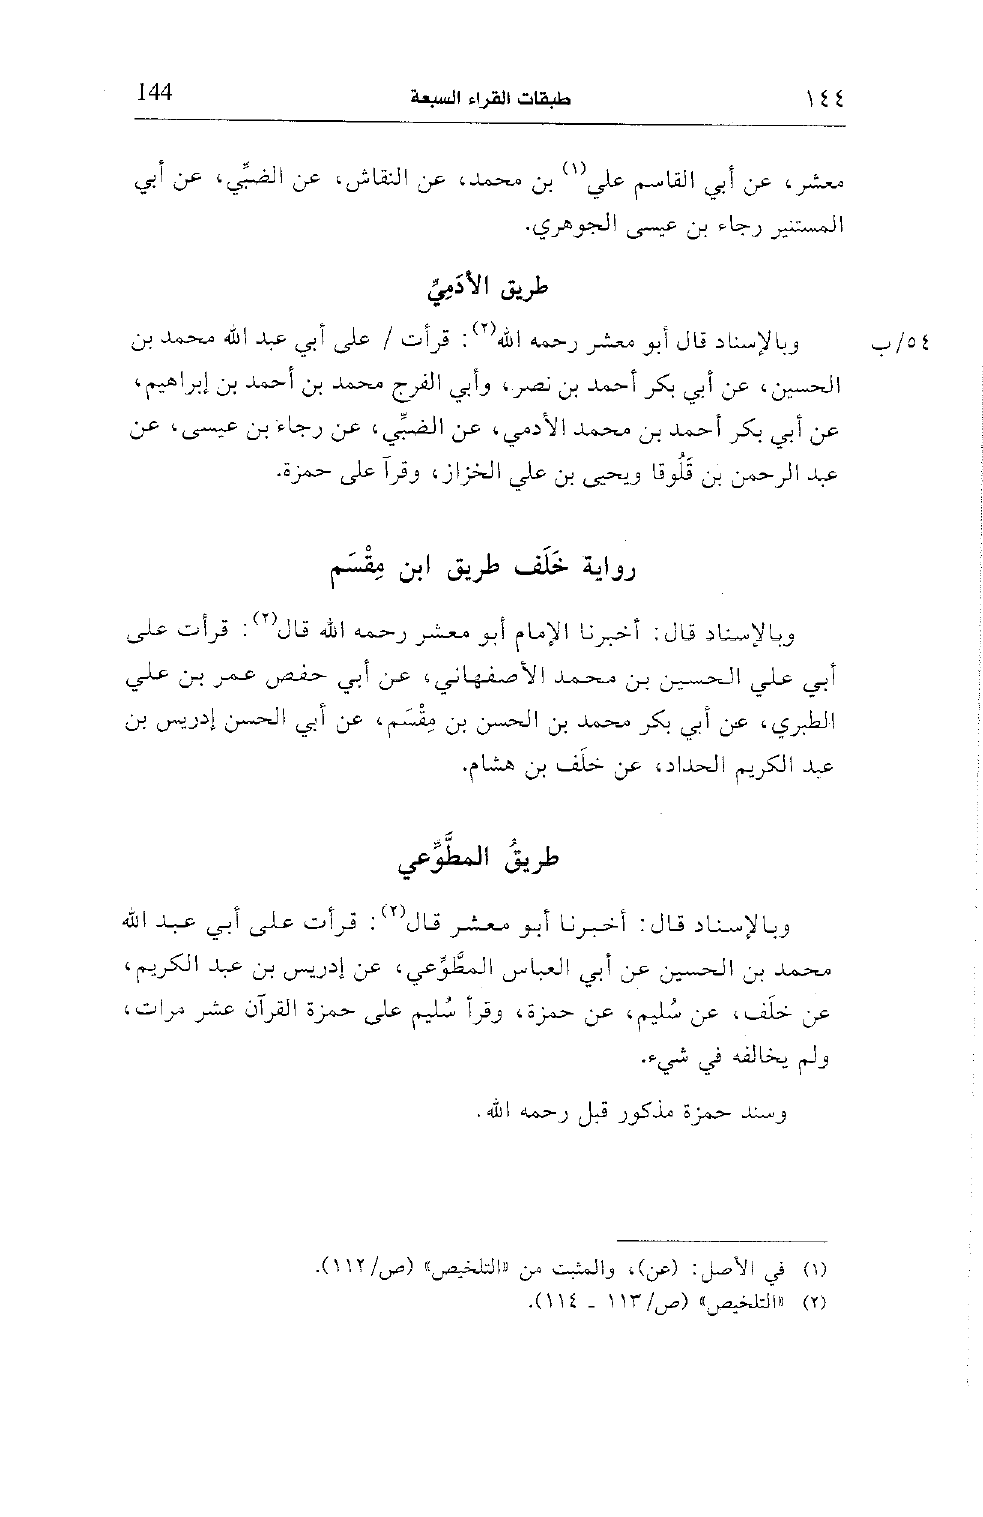 ١٤٤ طبقات القراء السبعة 144
معشر، عن أبي القاسم علي(١) بن محمد، عن النقاش، عن الضبِّي، عن أبي
المستنير رجاء بن عيسى الجوهري.
طريق الأدَمِيِّ
٥٤/ب وبالإسناد قال أبو معشر رحمه الله(٢): قرأت / على أبي عبد الله محمد بن
الحسين، عن أبي بكر أحمد بن نصر، وأبي الفرج محمد بن أحمد بن إبراهيم،
عن أبي بكر أحمد بن محمد الأدمي، عن الضبِّي، عن رجاء بن عيسى، عن
عبد الرحمن بن قَلُوقا ويحيى بن علي الخزاز، وقرآ على حمزة.
رواية خَلَف طريق ابن مِقْسَم
وبالإسناد قال: أخبرنا الإمام أبو معشر رحمه الله قال(٢): قرأت على
أبي علي الحسين بن محمد الأصفهاني، عن أبي حفص عمر بن علي
الطبري، عن أبي بكر محمد بن الحسن بن مِقْسَم، عن أبي الحسن إدريس بن
عبد الكريم الحداد، عن خلَف بن هشام.
طريقُ المطَّوِّعي
وبالإسناد قال: أخبرنا أبو معشر قال(٢): قرأت على أبي عبد الله
محمد بن الحسين عن أبي العباس المطَّوِّعي، عن إدريس بن عبد الكريم،
عن خلَف، عن سُليم، عن حمزة، وقرأ سُليم على حمزة القرآن عشر مرات،
ولم يخالفه في شيء.
وسند حمزة مذكور قبل رحمه الله.
(١) في الأصل: (عن)، والمثبت من «التلخيص» (ص/١١٢).
(٢) «التلخيص» (ص/١١٣ ـ ١١٤).